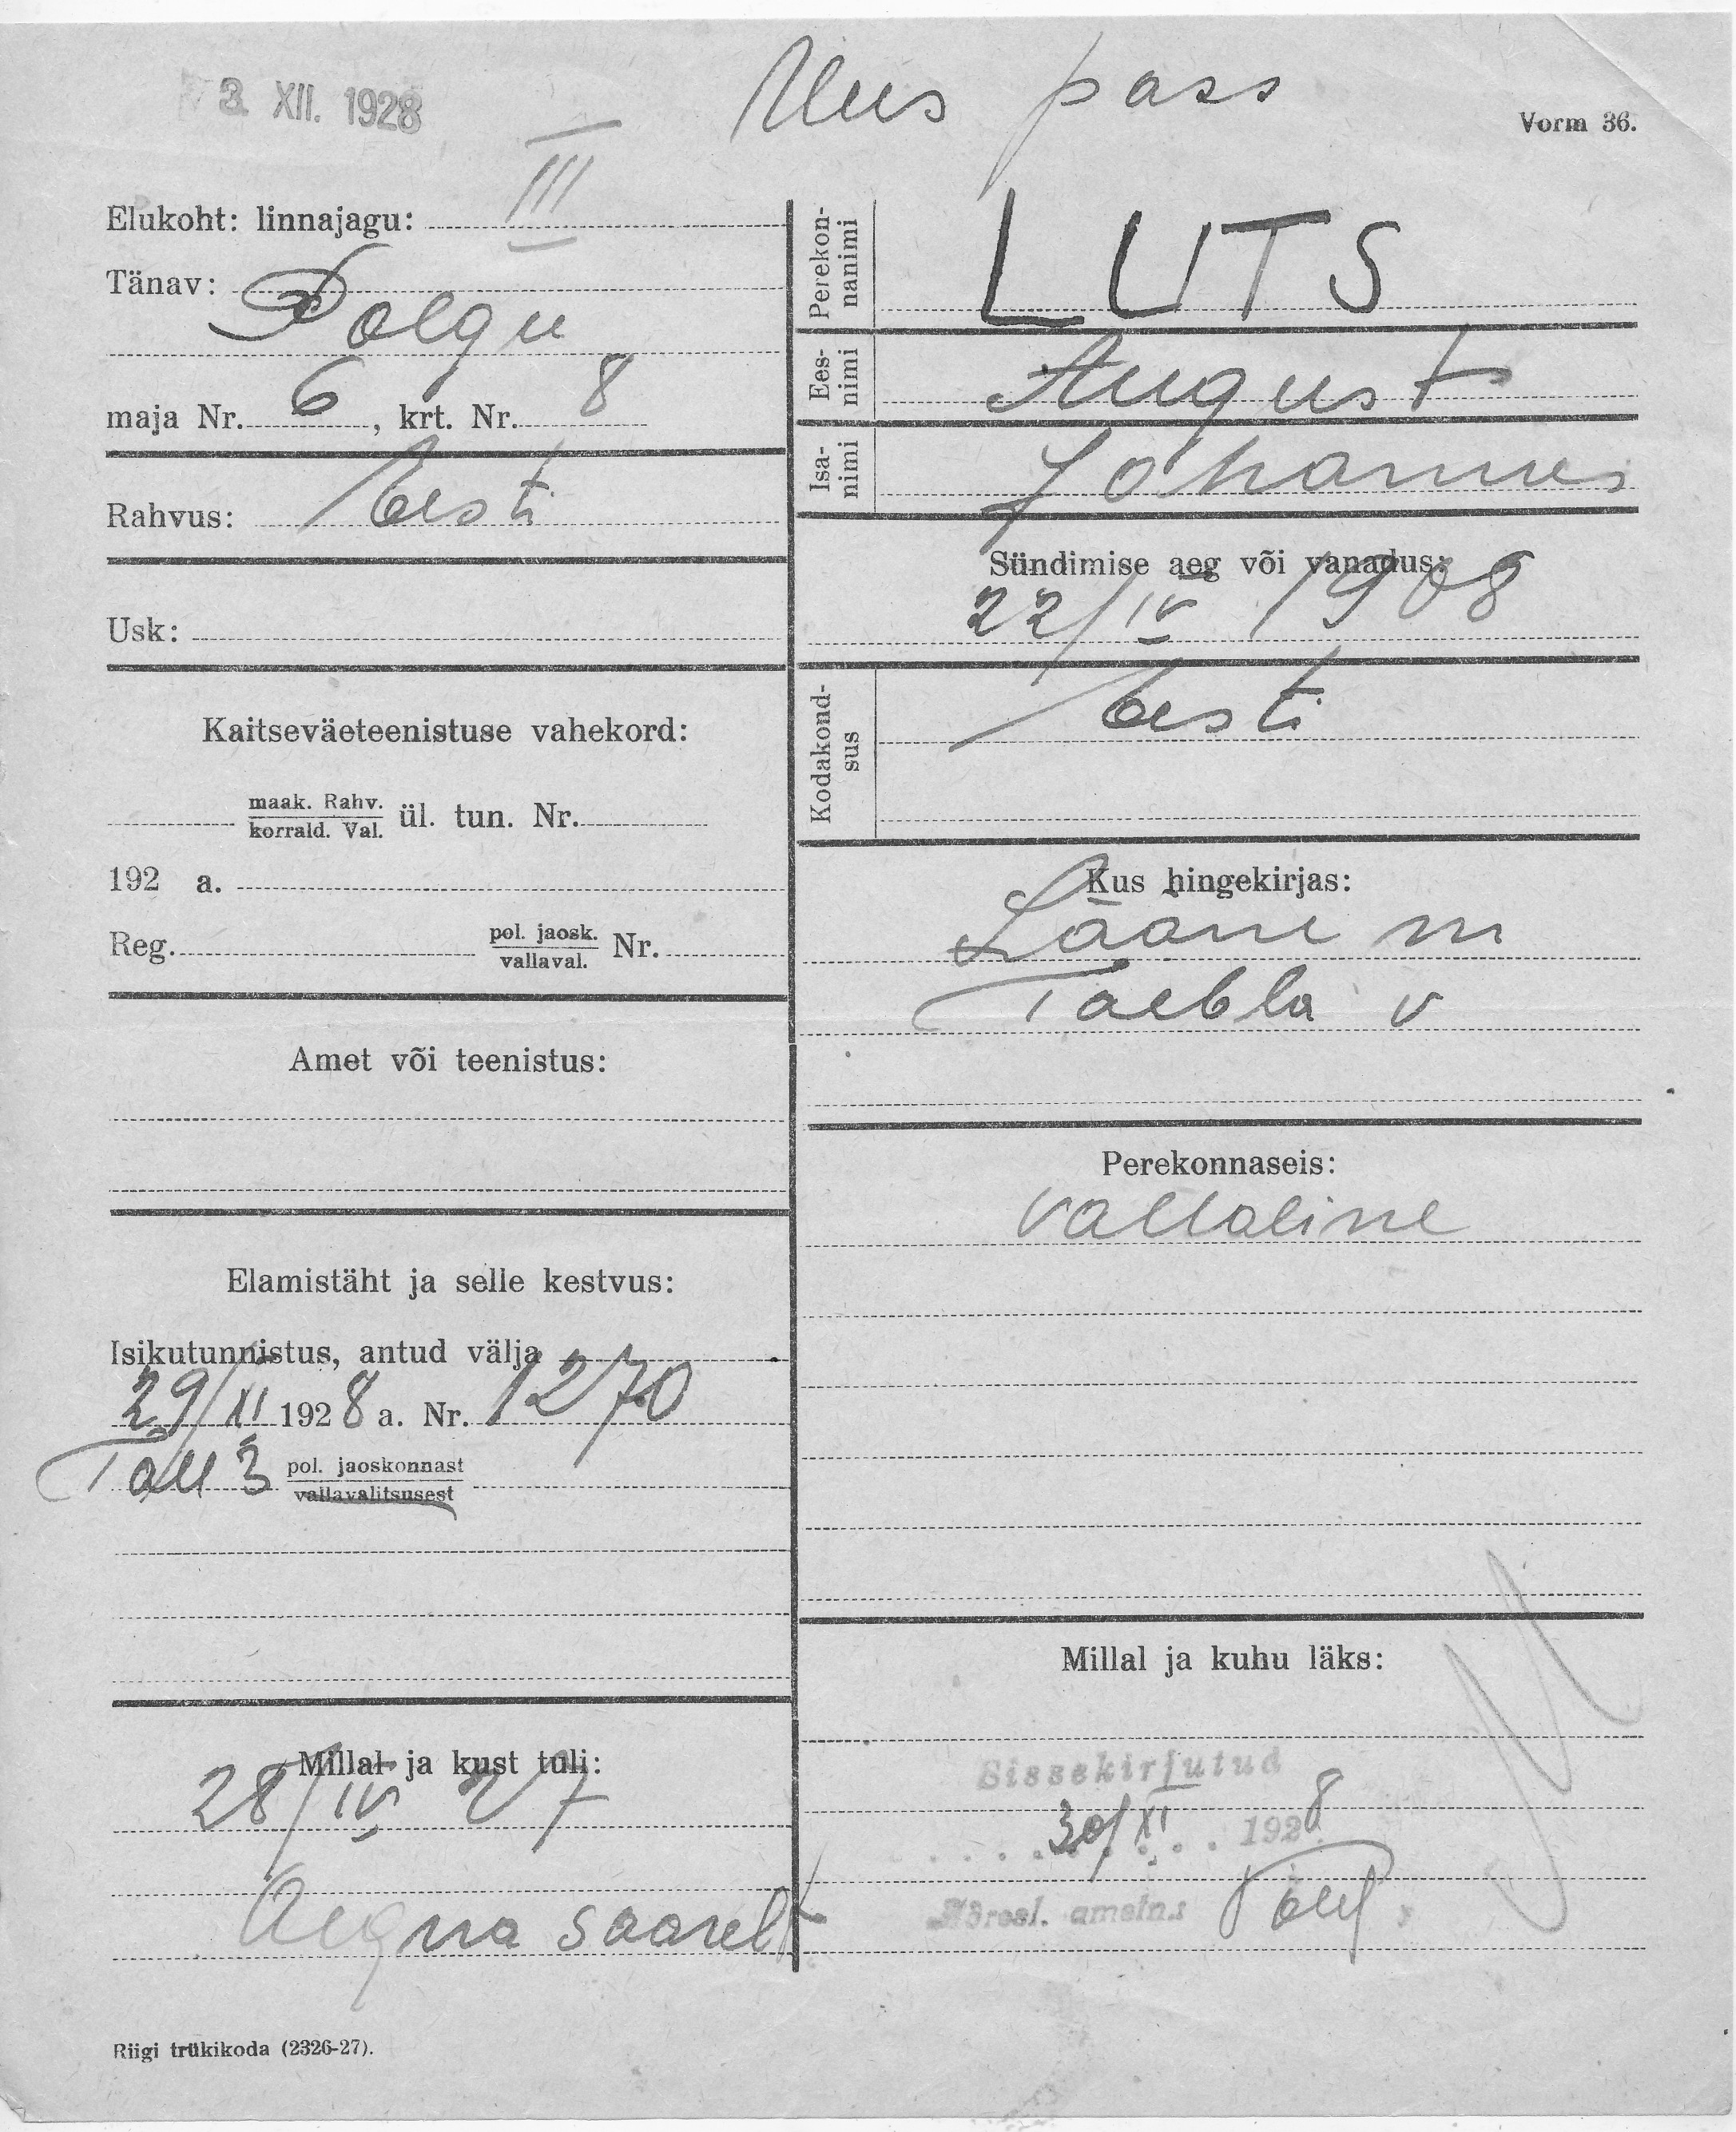 3. XII. 1928
Uus pass
Vorm 36.
Elukoht: linnajagu: III
Tänav:
Polgu
maja Nr. 6, krt. Nr. 8
Rahvus: Eesti
Usk:
Kaitseväeteenistuse vahekord:
maak. Rahv.
korrald. Val. ül. tun. Nr.
192 a.
Reg. pol. jaosk.
vallaval. Nr.
Amet või teenistus:
Elamistäht ja selle kestvus:
Isikutunnistus, antud välja
29/XI 1928 a. Nr. 1270
Tall 3 pol. jaoskonnast
vallavalitsusest
Millal ja kust tuli:
28/IV 27
Aegna saarelt
Riigi trükikoda (2326-27).
Perekon-
nanimi LUTS
Ees-
nimi August
Isa-
nimi Johannes
Sündimise aeg või vanadus:
22/IV 1908
Kodakond-
sus Eesti
Kus hingekirjas:
Lääne m
Taebla v
Perekonnaseis:
vallaline
Millal ja kuhu läks:
Sissekirjutud
30/XI 1928